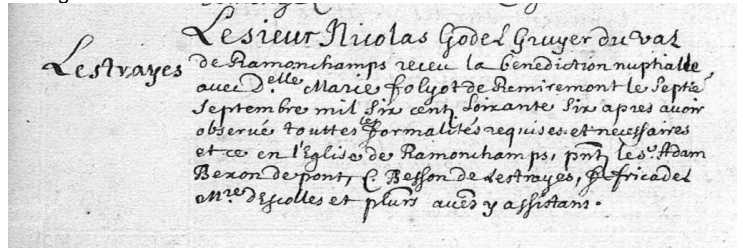 Le sieur Nicolas Godel Gruyer du val
Lestrayes
de Ramonchamps receu la benediction nuptialle
avec D.elle Marie folyot de Remiremont le septie
septembre mil six cent soixante six apres avoir
observé touttes les formalités requises et necessaires
et ce en l'Eglise de Ramonchamps, pnt les s.r Adam
Bexon de pont, C. Besson de Lestrayes, fricadel
M.re d'Escolles et plurs au.es y assistans.